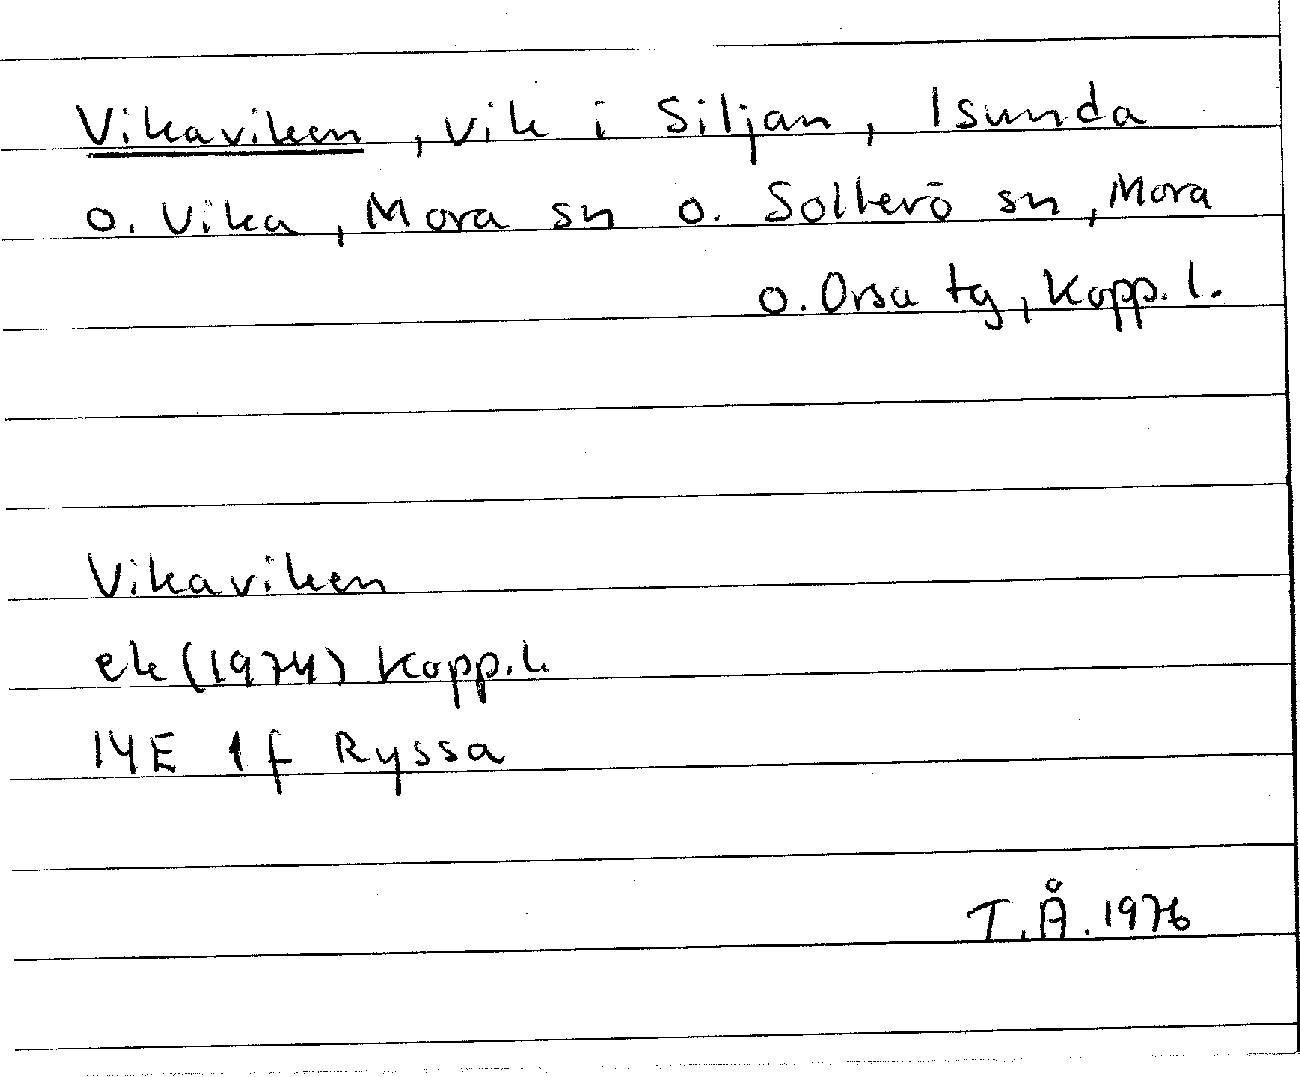 Vikaviken, vik i Siljan, Isunda
o. Vika, Mora sn o. Sollerö sn, Mora
o. Orsa tg, Kopp. l.
Vikaviken
ek (1974) Kopp. l.
14E 1f Ryssa
T. Å. 1976